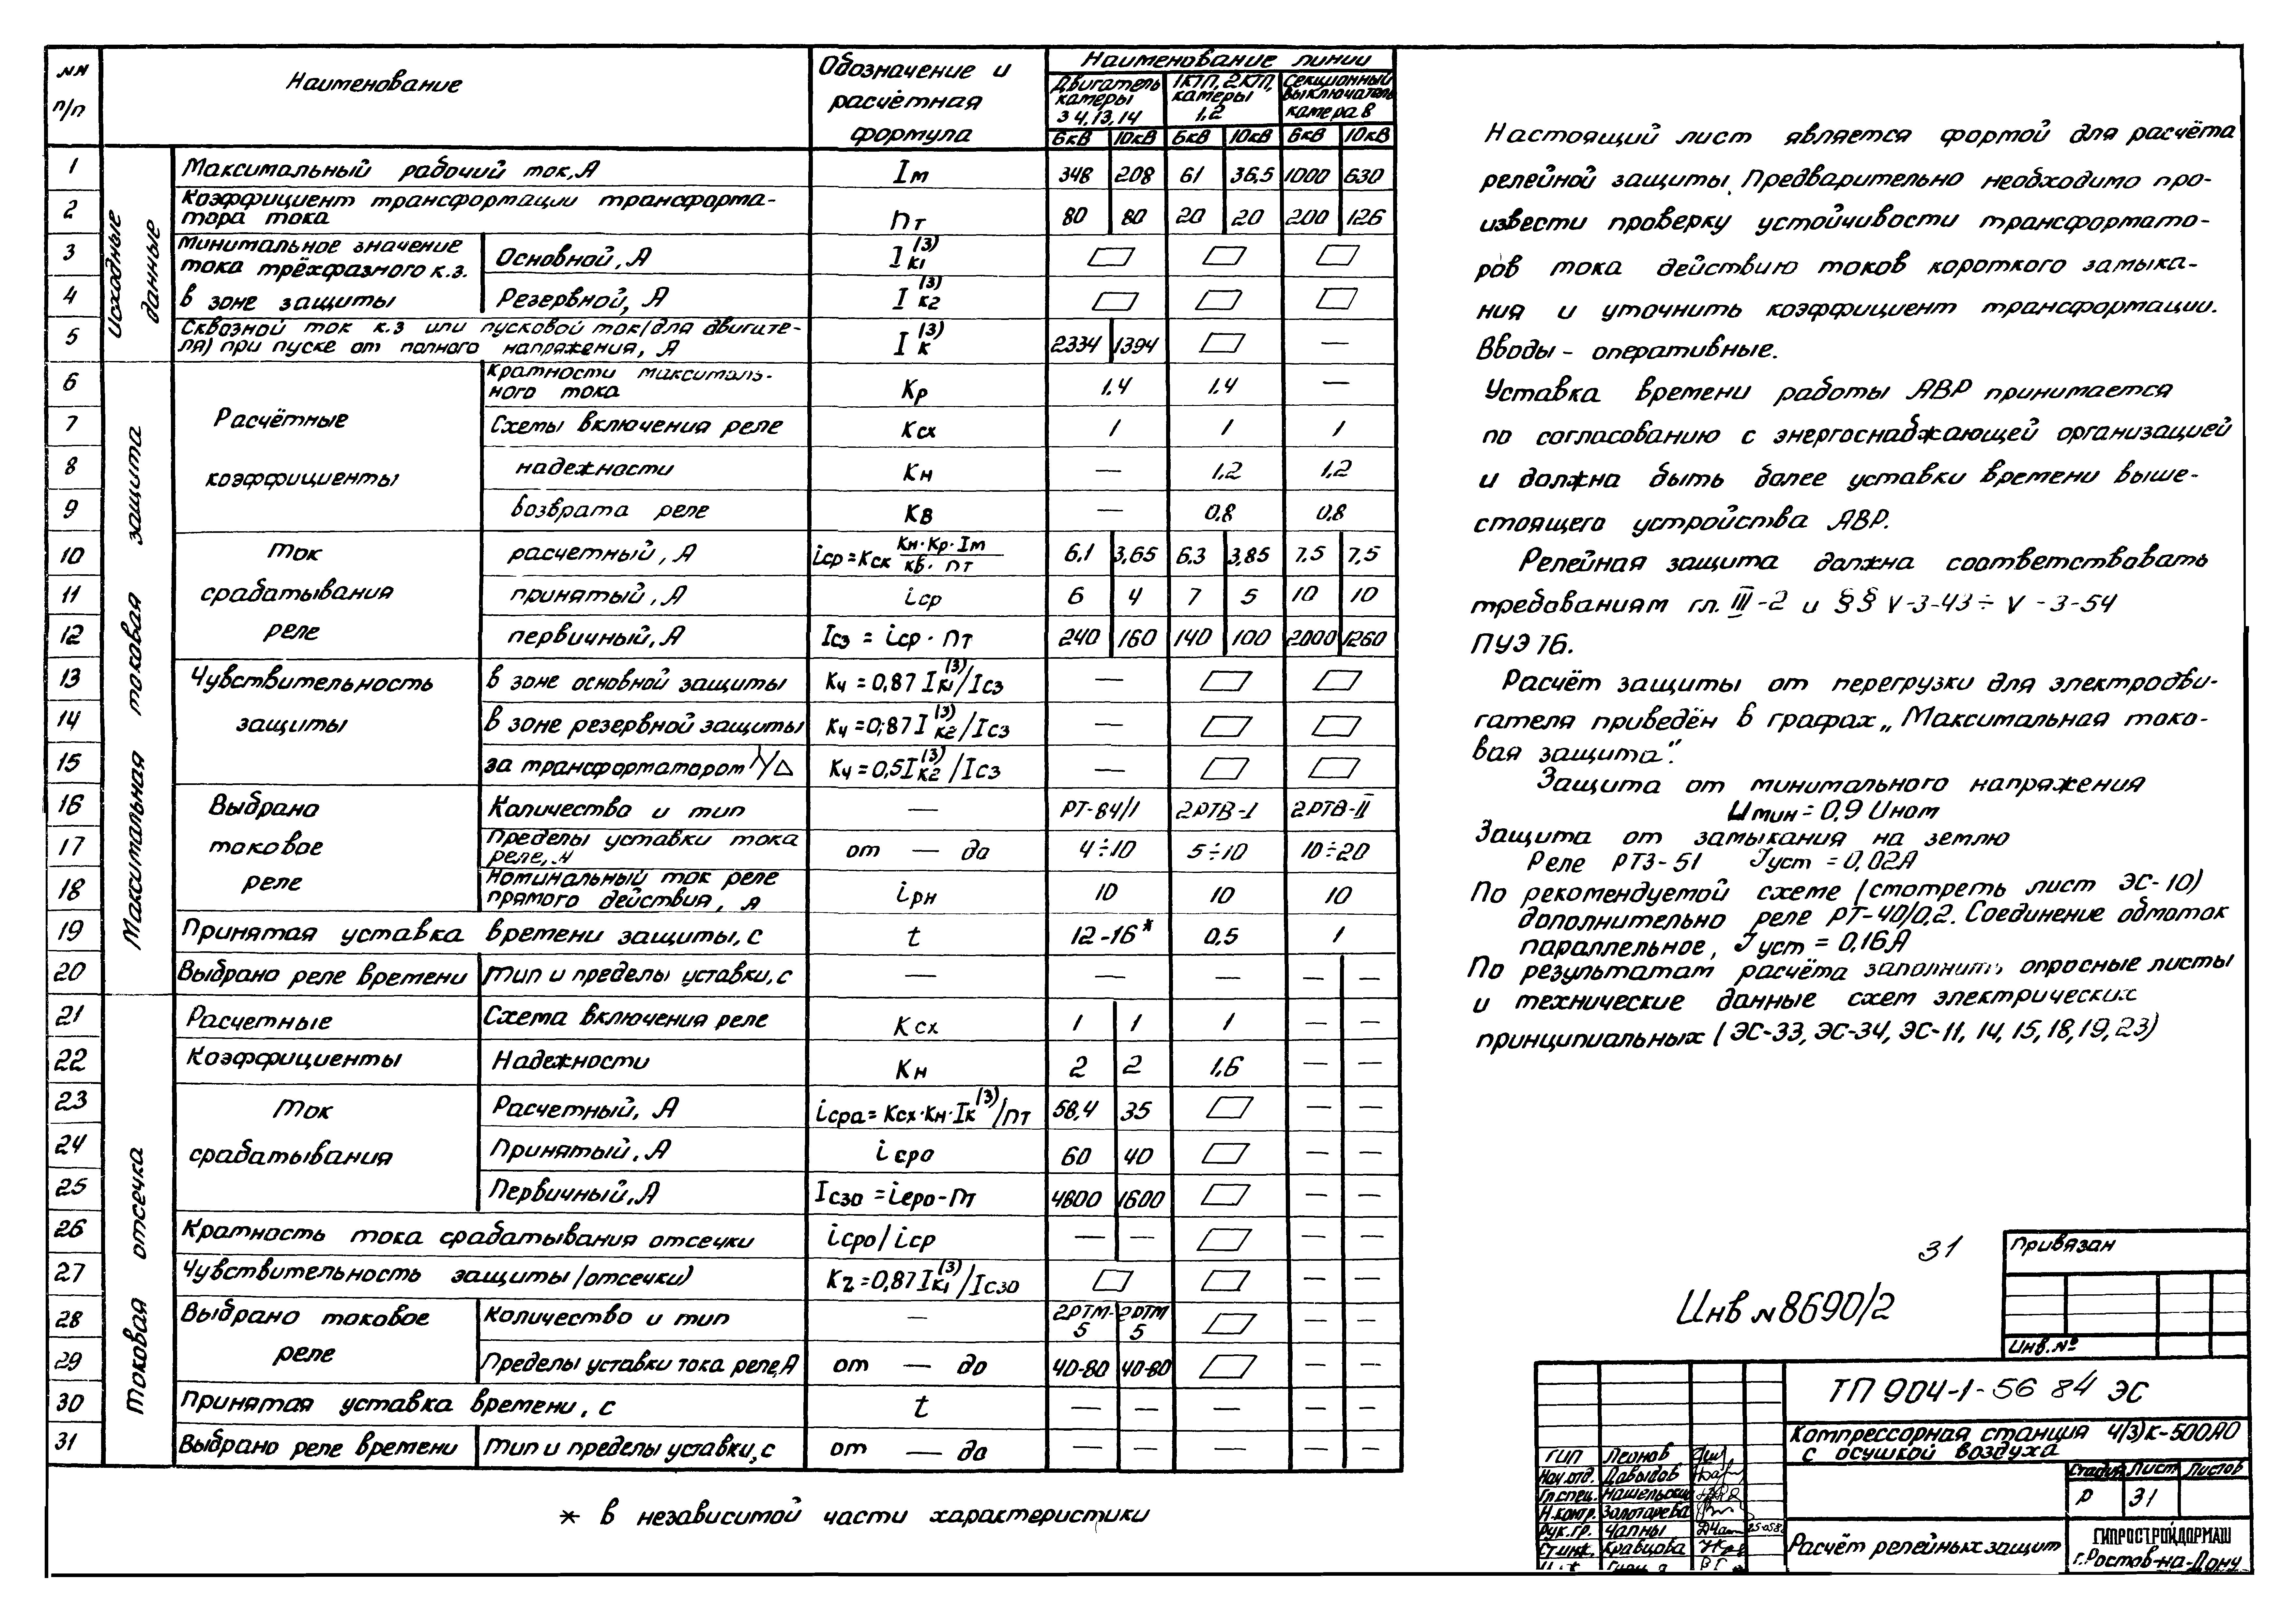 NN п/п | Наименование | Обозначение и расчётная формула | Наименование линии
Двигатель камеры 3 4, 13, 14 | 1КТП, 2КТП, камеры 1,2 | Секционный выключатель камера 8
6кВ | 10кВ | 6кВ | 10кВ | 6кВ | 10кВ
Исходные данные
1 | Максимальный рабочий ток, А | Iм | 348 | 208 | 61 | 36,5 | 1000 | 630
2 | Коэффициент трансформации трансформатора тока | nт | 80 | 80 | 20 | 20 | 200 | 126
Минимальное значение тока трёхфазного к.з. в зоне защиты
3 | Основной, А | I к1 (3)
4 | Резервной, А | I к2 (3)
5 | Сквозной ток к.з или пусковой ток (для двигателя) при пуске от полного напряжения, А | I к (3) | 2334 | 1394 | —
Максимальная токовая защита
Расчётные коэффициенты
6 | Кратности максимального тока | Кр | 1.4 | 1.4 | —
7 | Схемы включения реле | Ксх | 1 | 1 | 1
8 | надежности | Кн | — | 1,2 | 1,2
9 | возврата реле | Кв | — | 0,8 | 0,8
Ток срабатывания реле
10 | расчетный, А | iср = Кск Кн · Кр · Iм / кв · nт | 6,1 | 3,65 | 6.3 | 3,85 | 7.5 | 7,5
11 | принятый, А | iср | 6 | 4 | 7 | 5 | 10 | 10
12 | первичный, А | Iсз = iср · nт | 240 | 160 | 140 | 100 | 2000 | 1260
Чувствительность защиты
13 | в зоне основной защиты | Кч = 0,87 I к1 (3) / Iсз | —
14 | в зоне резервной защиты | Кч = 0,87 I к2 (3) / Iсз | —
15 | за трансформатором Y/Δ | Кч = 0,5 I к2 (3) / Iсз | —
Выбрано токовое реле
16 | Количество и тип | — | РТ-84/1 | 2РТВ-I | 2РТВ-II
17 | Пределы уставки тока реле, А | от — до | 4÷10 | 5÷10 | 10÷20
18 | Номинальный ток реле прямого действия, А | iрн | 10 | 10 | 10
19 | Принятая уставка времени защиты, с | t | 12-16* | 0,5 | 1
20 | Выбрано реле времени | Тип и пределы уставки, с | — | — | — | — | —
Токовая отсечка
Расчетные Коэффициенты
21 | Схема включения реле | Ксх | 1 | 1 | 1 | — | —
22 | Надежности | Кн | 2 | 2 | 1,6 | — | —
Ток срабатывания
23 | Расчетный, А | iсра = Ксх · Кн · Iк (3) / nт | 58,4 | 35 | — | —
24 | Принятый, А | iсро | 60 | 40 | — | —
25 | Первичный, А | Iсзо = iсро - nт | 4800 | 1600 | — | —
26 | Кратность тока срабатывания отсечки | iсро / iср | — | — | — | —
27 | Чувствительность защиты (отсечки) | К2 = 0,87 I к1 (3) / Iсзо | — | —
Выбрано токовое реле
28 | Количество и тип | — | 2РТМ-5 | 2РТМ 5 | — | —
29 | Пределы уставки тока реле, А | от — до | 40-80 | 40-80 | — | —
30 | Принятая уставка времени, с | t | — | — | — | — | —
31 | Выбрано реле времени | Тип и пределы уставки, с | от — до | — | — | — | — | —
* в независимой части характеристики
Настоящий лист является формой для расчёта
релейной защиты. Предварительно необходимо про-
извести проверку устойчивости трансформато-
ров тока действию токов короткого замыка-
ния и уточнить коэффициент трансформации.
Вводы - оперативные.
Уставка времени работы АВР принимается
по согласованию с энергоснабжающей организацией
и должна быть более уставки времени выше-
стоящего устройства АВР.
Релейная защита должна соответствовать
требованиям гл. III-2 и §§ V-3-43÷ V-3-54
ПУЭ 76.
Расчёт защиты от перегрузки для электродви-
гателя приведён в графах „Максимальная токо-
вая защита".
Защита от минимального напряжения
Uмин = 0,9 Uном
Защита от замыкания на землю
Реле РТЗ-51 Jуст = 0,02А
По рекомендуемой схеме (смотреть лист ЭС-10)
дополнительно реле РТ-40/0,2. Соединение обмоток
параллельное, Jуст = 0,16А
По результатам расчёта заполнить опросные листы
и технические данные схем электрических
принципиальных (ЭС-33, ЭС-34, ЭС-11, 14, 15, 18, 19, 23)
31
Инв N8690/2
Привязан
Инв. №
ТП 904-1-56 84 ЭС
Компрессорная станция 4(3)К-500АО
с осушкой воздуха
ГИП Леонов
Нач.отд. Давыдов
Гл.спец. Нашельский
Н.контр. Золотарева
Рук.гр. Чапны
Ст.инж. Кравцова
Стадия | Лист | Листов
Р | 31
Расчёт релейных защит
ГИПРОСТРОЙДОРМАШ
г.Ростов-на-Дону